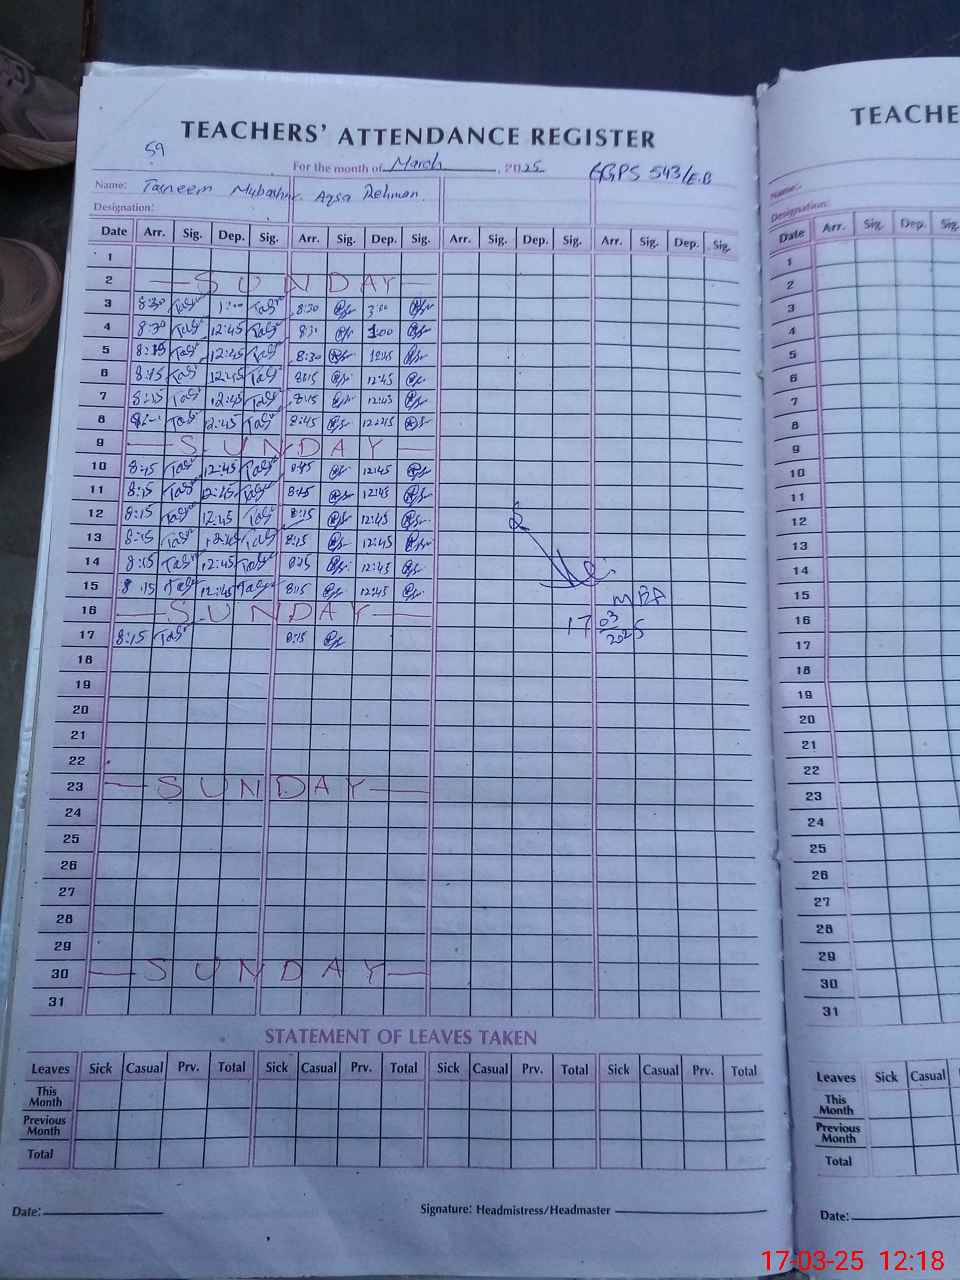 TEACHERS' ATTENDANCE REGISTER
59
For the month of March, 2025 GGPS 543/E.B
Name: Tasneem Mubashir Aqsa Rehman
Designation:
Date Arr. Sig. Dep. Sig. Arr. Sig. Dep. Sig. Arr. Sig. Dep. Sig. Arr. Sig. Dep. Sig.
1
2 SUNDAY
3 8:30 Tas 1:00 Tas 8:30 3:00
4 8:30 Tas 12:45 Tas 8:30 1:00
5 8:15 Tas 12:45 Tas 8:30 12:45
6 8:15 Tas 12:45 Tas 8:15 12:45
7 8:15 Tas 12:45 Tas 8:15 12:45
8 Tas 12:45 Tas 8:45 12:45
9 SUNDAY
10 8:15 Tas 12:45 Tas 8:15 12:45
11 8:15 Tas 12:45 Tas 8:15 12:45
12 8:15 Tas 12:45 Tas 8:15 12:45
13 8:15 Tas 12:45 Tas 8:15 12:45
14 8:15 Tas 12:45 Tas 8:15 12:45
15 8:15 Tas 12:45 Tas 8:15 12:45
16 SUNDAY
17 8:15 Tas 8:15
17 03 2025
18
19
20
21
22
23 SUNDAY
24
25
26
27
28
29
30 SUNDAY
31
STATEMENT OF LEAVES TAKEN
Leaves Sick Casual Prv. Total Sick Casual Prv. Total Sick Casual Prv. Total Sick Casual Prv. Total
This Month
Previous Month
Total
Date: Signature: Headmistress/Headmaster
TEACHE
Name:
Designation:
Date Arr. Sig. Dep. Sig.
1
2
3
4
5
6
7
8
9
10
11
12
13
14
15
16
17
18
19
20
21
22
23
24
25
26
27
28
29
30
31
Leaves Sick Casual
This Month
Previous Month
Total
Date:
17-03-25 12:18